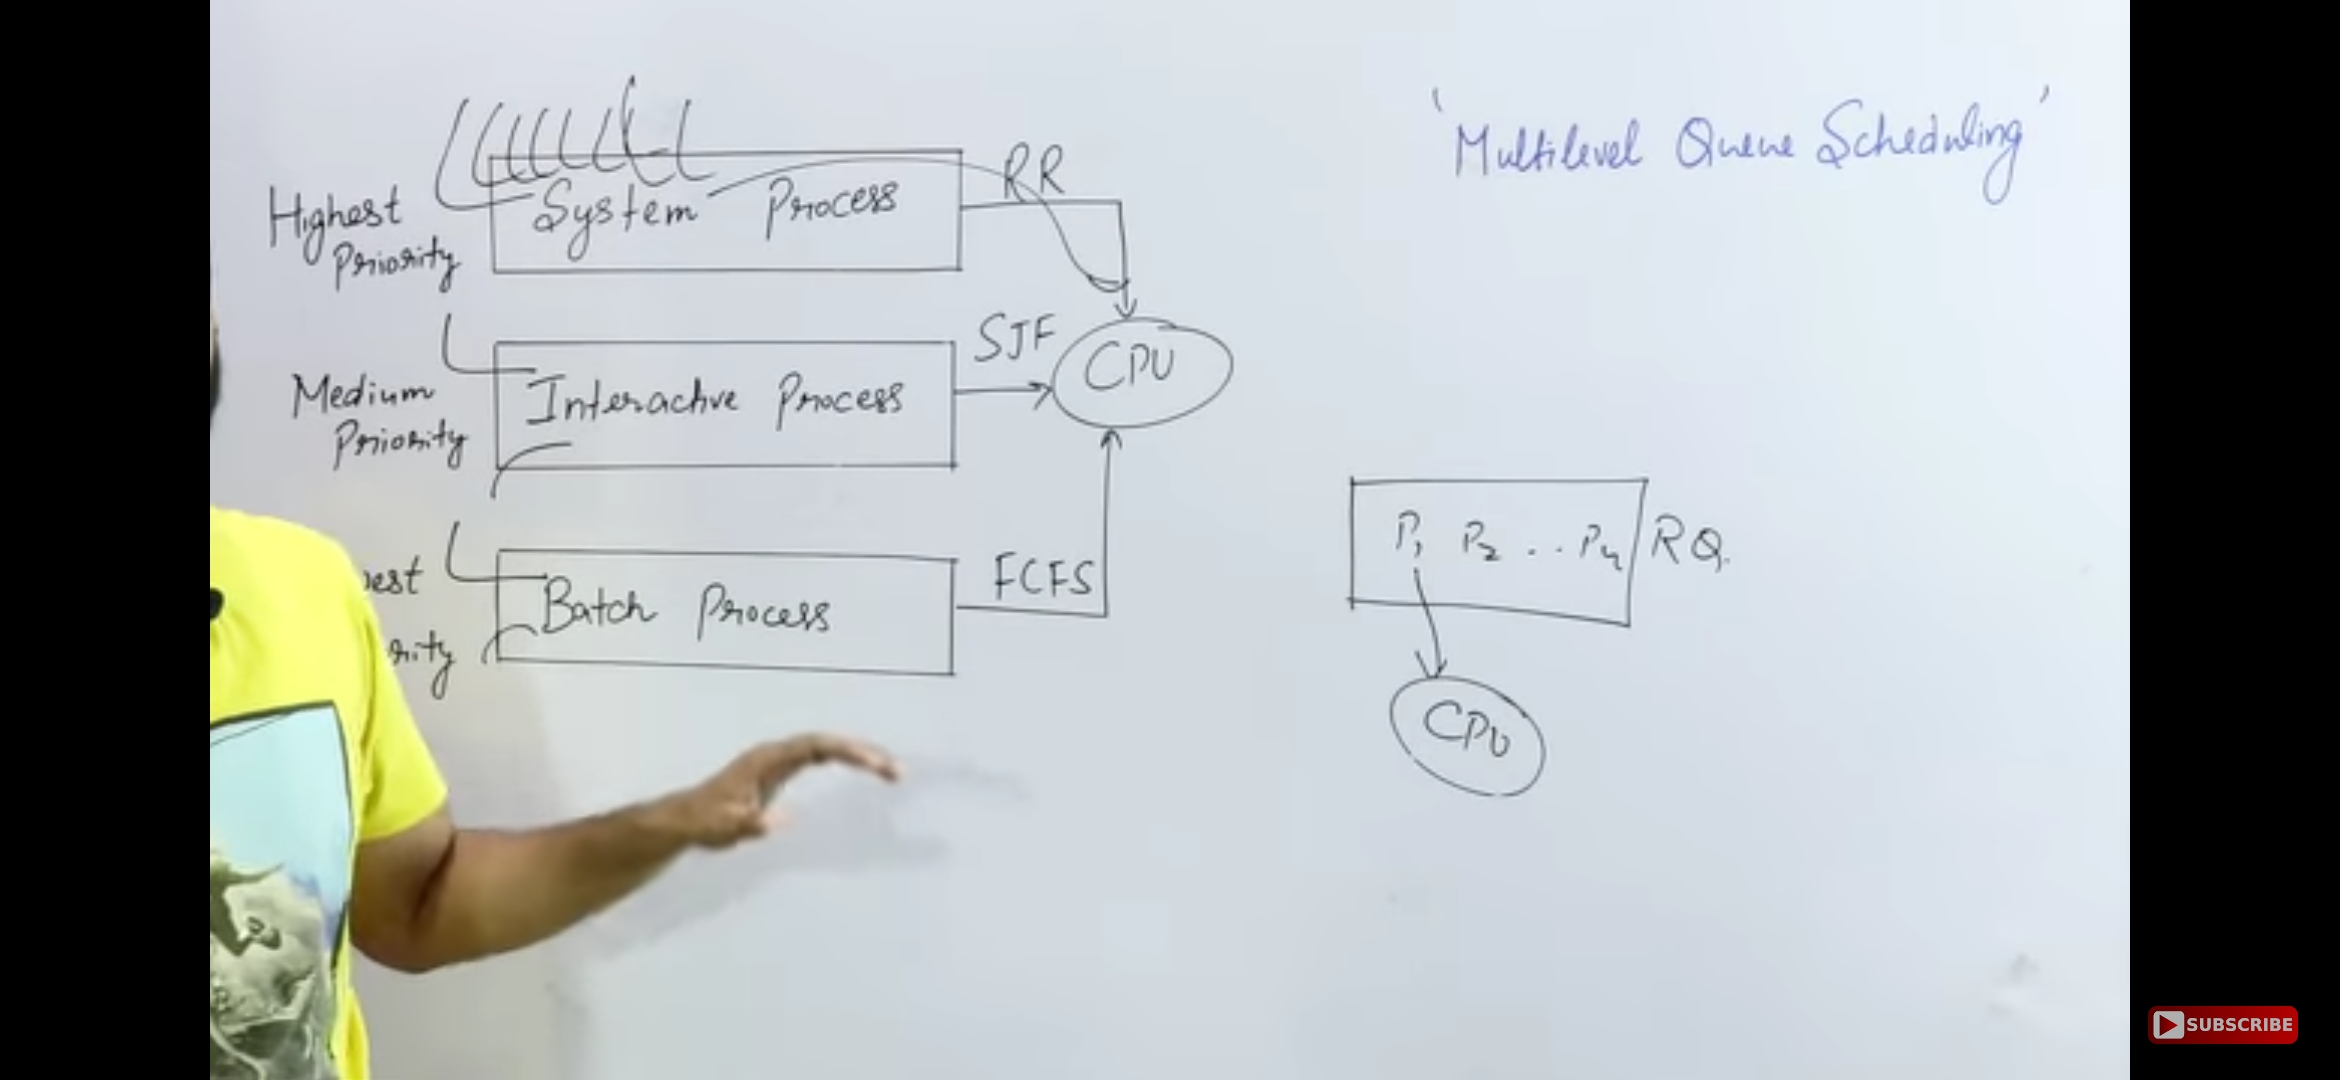 'Multilevel Queue Scheduling'
Highest
Priority
System Process
RR
Medium
Priority
Interactive Process
SJF
CPU
Batch Process
FCFS
P1 P2 .. Pn RQ.
CPU
SUBSCRIBE